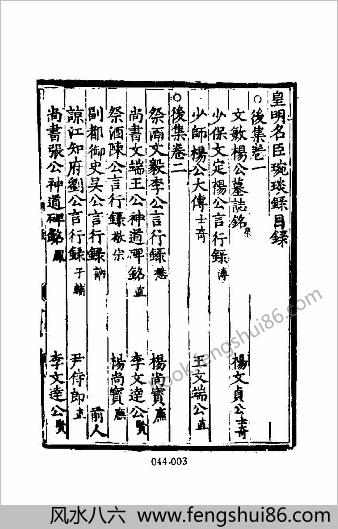 皇明名臣琬琰錄目錄
○後集卷一
文敏楊公墓誌銘榮 楊文貞公士奇
少保文定楊公言行錄溥
少師楊公大傳士奇 王文端公直
○後集卷二
祭酒文毅李公言行錄懋 楊尚寶廉
尚書文端王公神道碑銘直 李文達公賢
祭酒陳公言行錄敬宗 楊尚寶廉
副都御史吳公言行錄訥 前人
諒江知府劉公言行錄子輔 尹侍郎直
尚書張公神道碑銘鳳 李文達公賢
044-003
book.fengshui86.com
风水八六 www.fengshui86.com